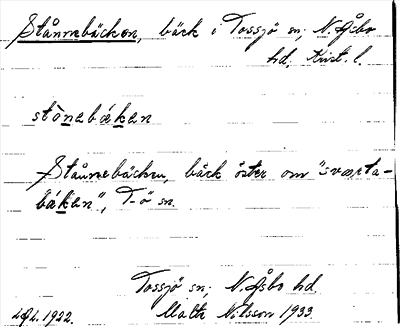 Stånnebäcken, bäck i Tossjö sn, N. Åsbo
hd, Krist. l.
stònebä́ken
Stånnebäcken, bäck öster om "svarta-
bä́ken", T-ö sn.
Tossjö sn; N. Åsbo hd.
1922. Malte Nilsson 1933.